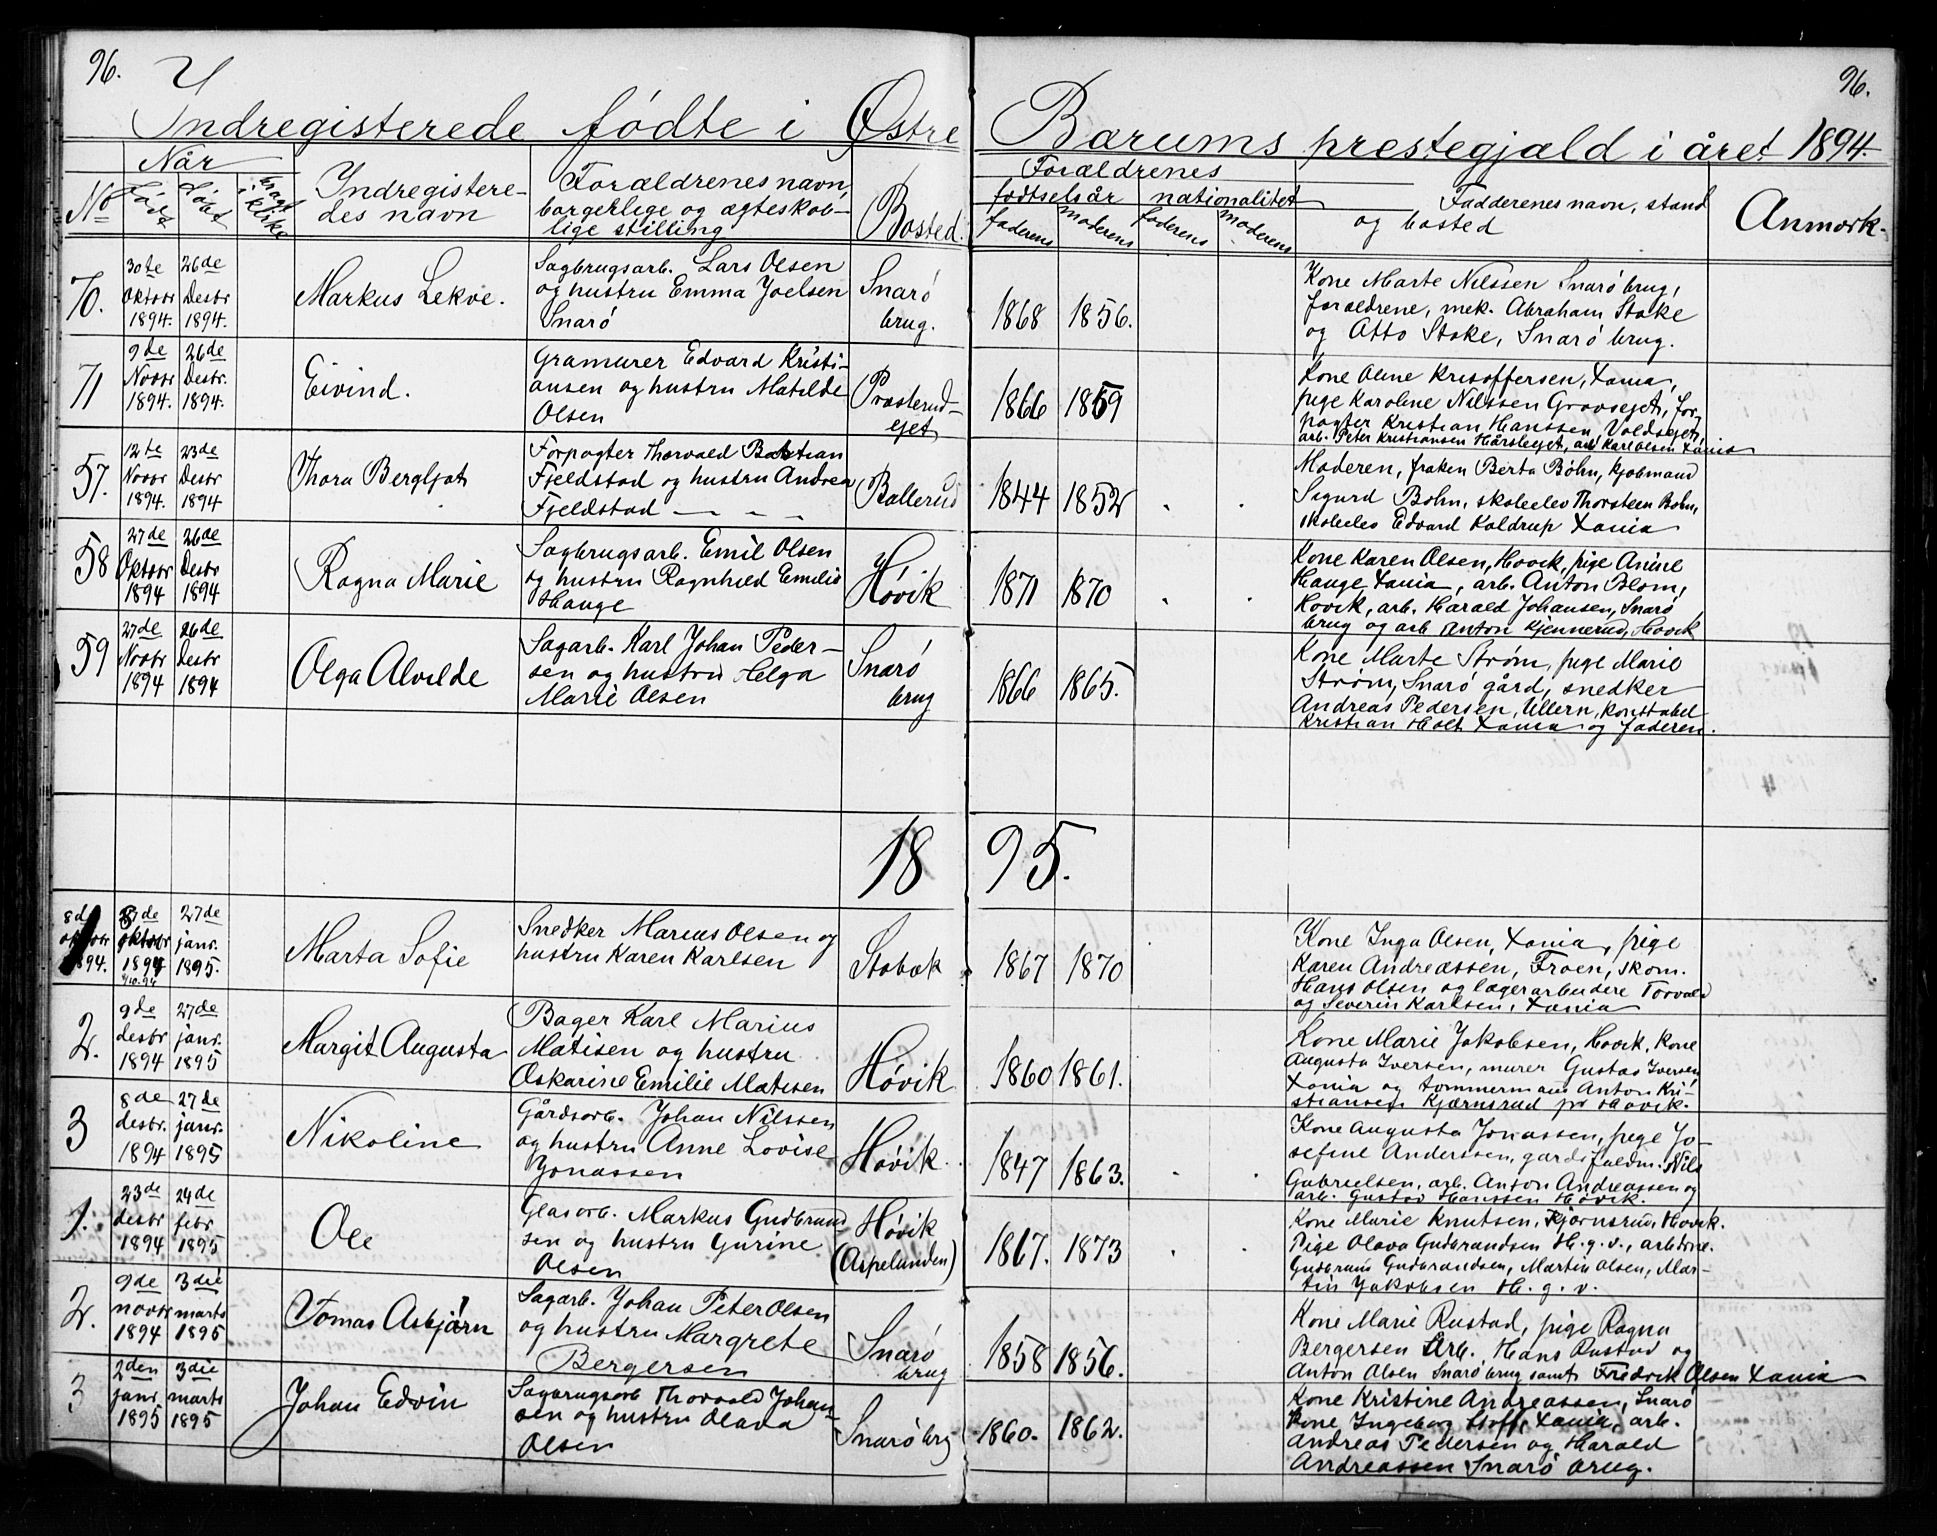 96.
96.
Indregisterede fødte i Østre Bærums prestegjæld i året 1894.
Når
Forældrenes
No
født
døbt
bragt i kirke
Indregistere-
des navn
Forældrenes navn,
borgerlige og ægteskab-
lige stilling
Bosted.
fødselsår
nationalitet
faderens
moderens
faderens
moderens
Faddernes navn, stand
og bosted
Anmærk.
70.
30te
Oktobr
1894.
26de
Desbr
1894.
Markus Lekve.
Sagbrugsarb. Lars Olsen
og hustru Emma Joelsen
Snarø
Snarø
brug.
1868
1856.
Kone Marte Nilssen Snarø brug,
forældrene, mek. Abraham Stake
og Otto Stake, Snarø brug.
71
9de
Novbr
1894.
26de
Desbr.
1894.
Eivind.
Gramurer Edvard Kristi-
ansen og hustru Matilde
Olsen
Præsterud-
ejet
1866
1859
Kone Oline Kristoffersen, Xania,
pige Karoline Nilssen Gravsejet, for-
pagter Kristian Hanssen, Voldsejet,
arb. Peter Kristiansen Hårslejet, arb Karl Olsen Xania
57.
12te
Novbr
1894.
23de
Desbr
1894
Thora Bergljot
Forpagter Thorvald Bastian
Fjeldstad og hustru Andrea
Fjeldstad
Ballerud
1844
1852
Moderen, frøken Berta Bøhn, kjøbmand
Sigurd Bøhn, skoleelev Thorsteen Bøhn,
skoleelev Edvard Koldrup Xania
58
27de
Oktobr
1894
26de
Desbr
1894
Ragna Marie
Sagbrugsarb. Emil Olsen
og hustru Ragnhild Emilie
Hauge
Høvik
1871
1870
Kone Karen Olsen, Høvik, pige Anine
Hauge Xania, arb. Anton Blom,
Høvik, arb. Harald Johansen, Snarø
brug og arb Anton Kjennerud, Høvik
59
27de
Novbr
1894
26de
Desbr
1894
Olga Alvilde
Sagarb. Karl Johan Peder-
sen og hustru Helga
Marie Olsen
Snarø
brug
1866
1865.
Kone Marte Strøm, pige Marie
Strøm, Snarø gård, snedker
Andreas Pedersen, Ullern, konstabel
Kristian Holt Xania og faderen.
1895.
8de
oktobr
1894.
27de
oktobr
1894
27de
janr.
1895.
Marta Sofie
Snedker Marius Olsen og
hustru Karen Karlsen
Stabæk
1867
1870
Kone Inga Olsen, Xania, pige
Karen Andreassen, Frøen, skom.
Hans Olsen og lagerarbeidere Torvald
og Severin Karlsen, Xania
2.
9de
desbr
1894
27de
janr.
1895
Margit Augusta
Bager Karl Marius
Matisen og hustru
Oskarine Emilie Matisen
Høvik
1860
1861.
Kone Marie Jakobsen, Høvik, Kone
Augusta Iversen, murer Gustav Iversen
Xania og tømmermann Anton Kri-
stiansen Kjærnsrud pr Høvik.
3
8de
desbr.
1894
27de
janr.
1895
Nikoline
Gårdsarb. Johan Nilssen
og hustru Anne Lovise
Jonassen
Høvik
1847
1863.
Kone Augusta Jonassen, pige Jo-
sefine Anderssen, gårdsfuldm. Nils
Gabrielsen, arb. Anton Andreassen og
arb. Gustav Hanssen Høvik.
1.
23de
desbr
1894
24de
febr
1895
Ole
Glasarb. Markus Gudbrand-
sen og hustru Gurine
Olsen
Høvik
(Aspelunden)
1867.
1873
Kone Marie Knutsen, Kjørnsrud, Høvik.
Pige Olava Gudbrandsen H.g.v., arbdrne.
Gudbrand Gudbrandsen, Martin Olsen, Mar-
tin Jakobsen H.g.v.
2.
9de
novbr
1894
3die
marts
1895
Tomas Asbjørn
Sagarb. Johan Peter Olsen
og hustru Margrete
Bergersen
Snarø
brug
1858
1856.
Kone Marie Rustad, pige Ragna
Bergersen Arb. Hans Rustad og
Anton Olsen Snarø brug samt Fredrik Olsen Xania
3
2den
janr
1895
3die
marts
1895
Johan Edvin
Sagbrugsarb Thorvald Johan-
sen og hustru Olava
Olsen
Snarø brg
1860.
1862.
Kone Kristine Andreassen, Snarø
Kone Ingeborg Hoff, Xania, arb.
Andreas Pedersen og Harald
Andreassen Snarø brug.